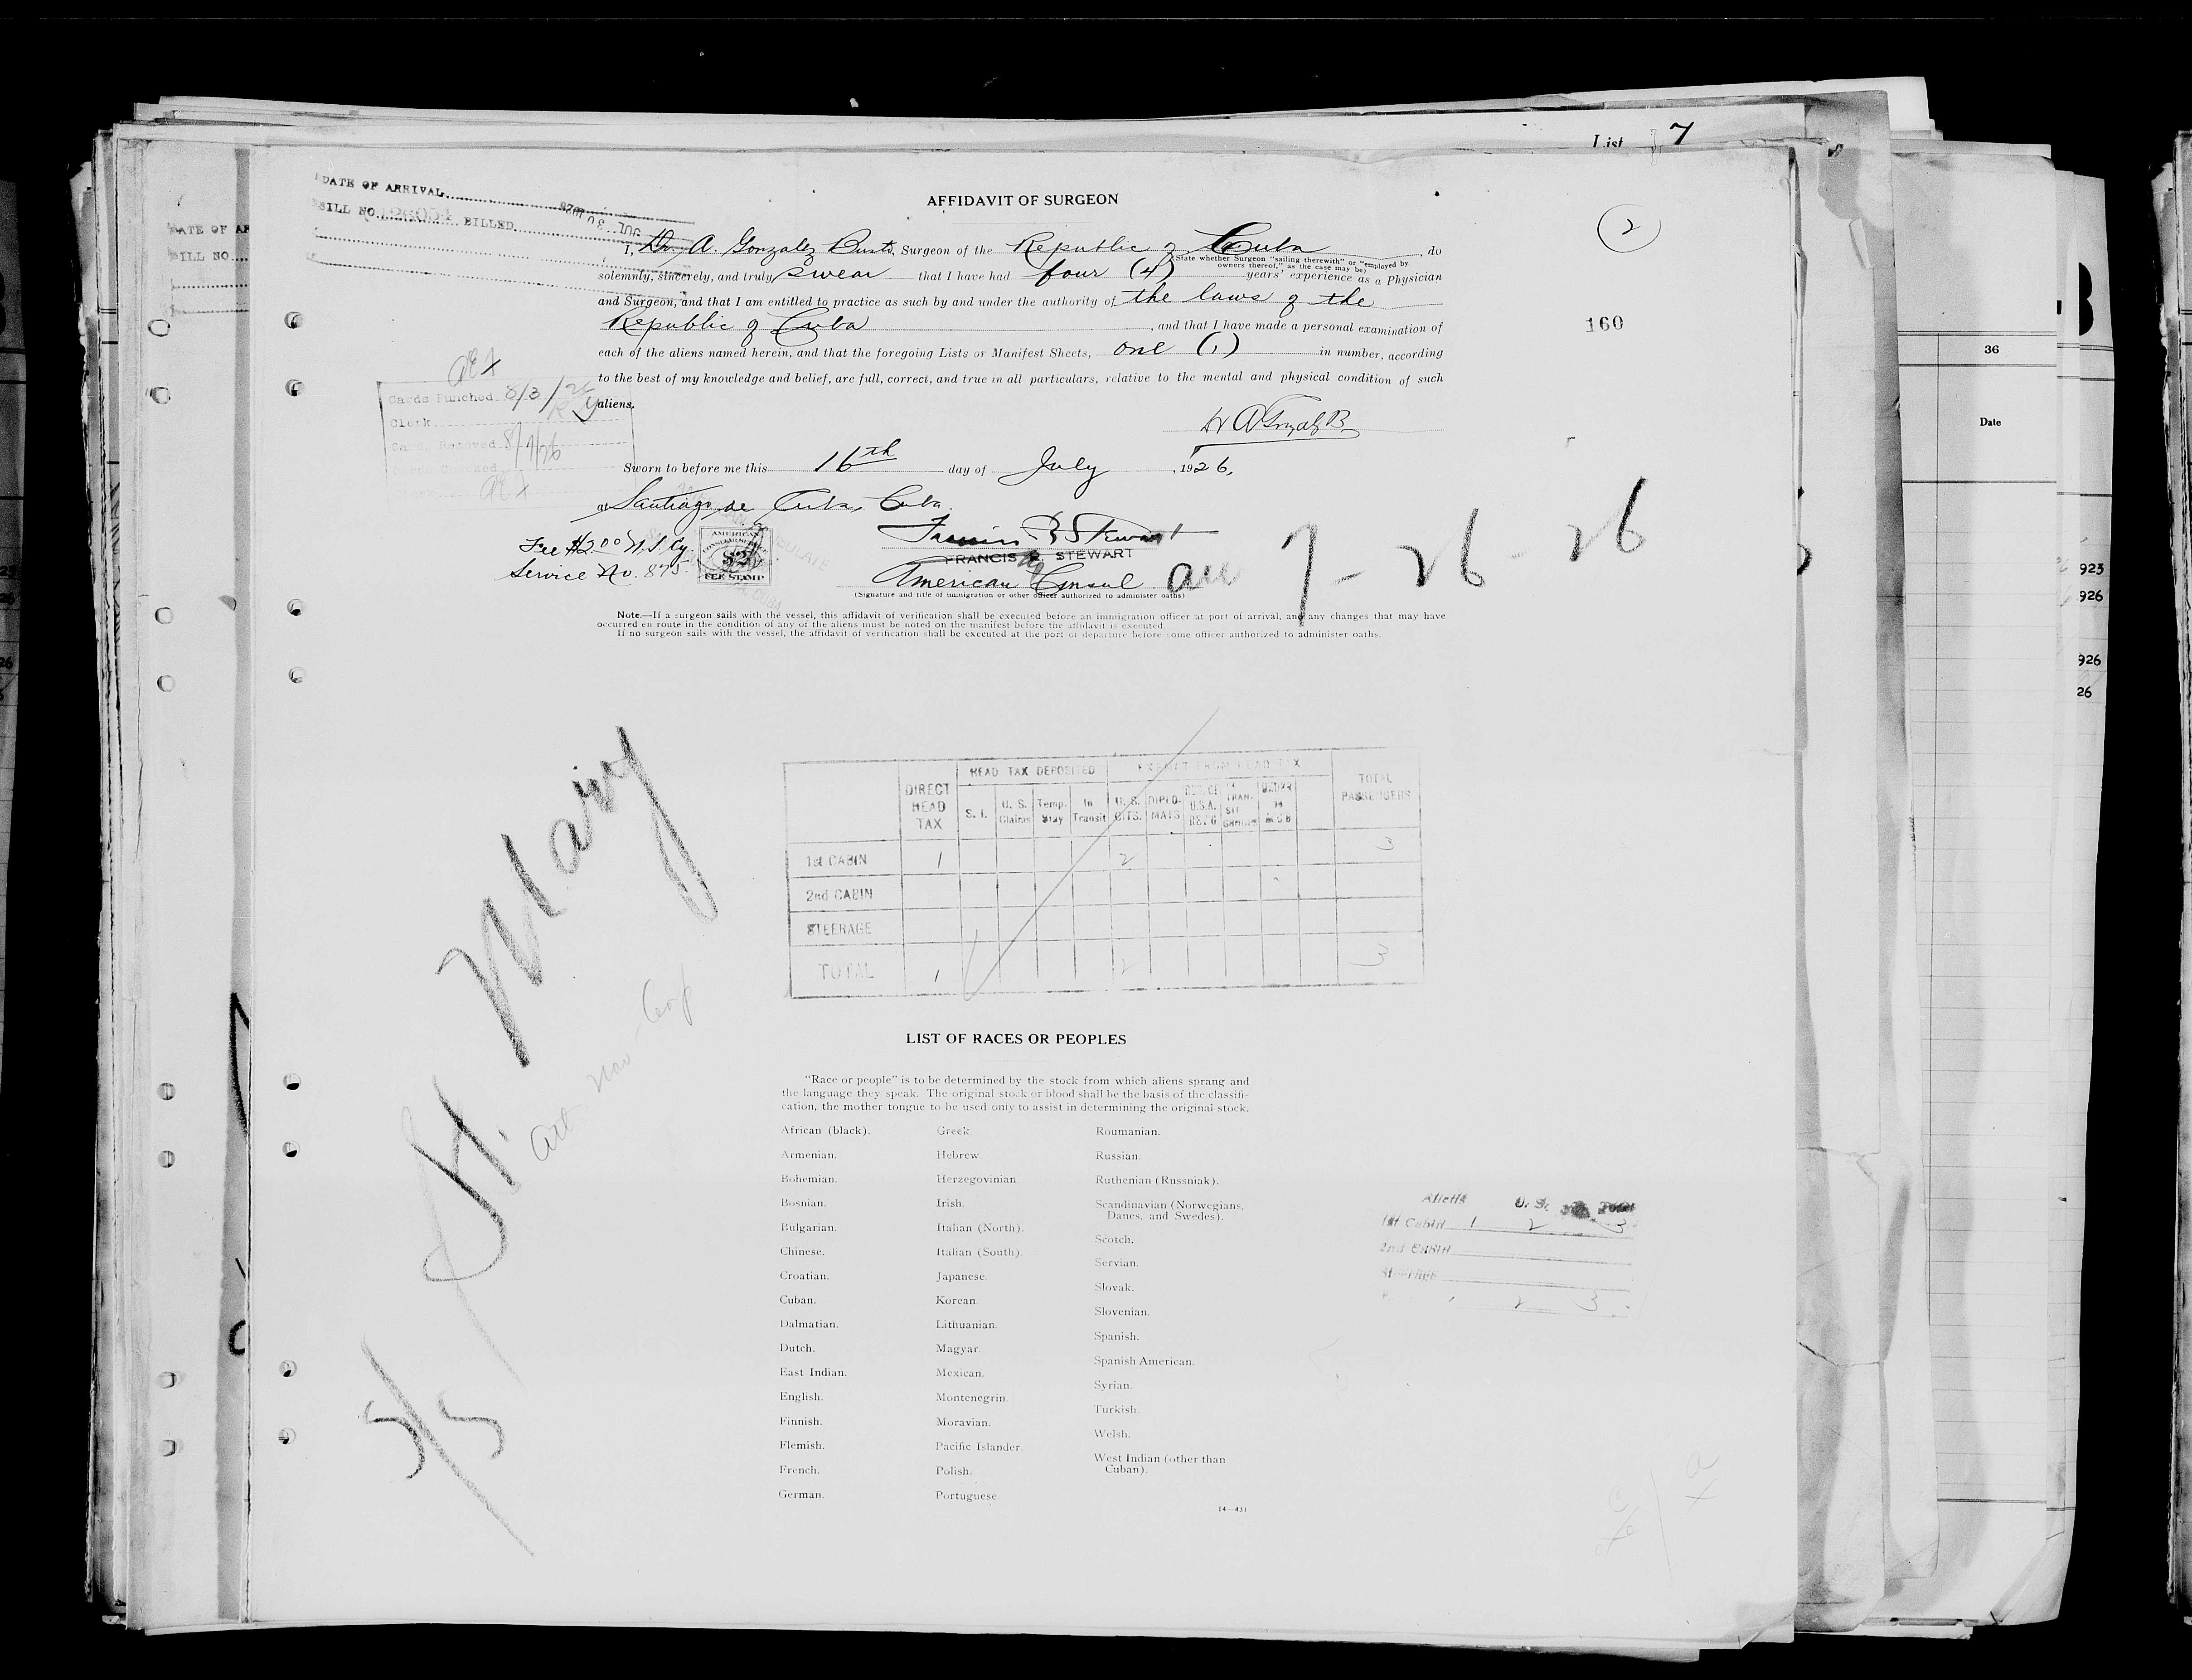 List 7
DATE OF ARRIVAL JUL 30 1926
BILL NO. BILLED
DATE OF AR
BILL NO.
AFFIDAVIT OF SURGEON
2
I, Dr. A. Gonzalez Surgeon of the Republic of Cuba, do
(State whether Surgeon "sailing therewith" or "employed by
owners thereof," as the case may be)
solemnly, sincerely, and truly swear that I have had four (4) years' experience as a Physician
and Surgeon, and that I am entitled to practice as such by and under the authority of the laws of the
Republic of Cuba, and that I have made a personal examination of
each of the aliens named herein, and that the foregoing Lists or Manifest Sheets, one (1) in number, according
to the best of my knowledge and belief, are full, correct, and true in all particulars, relative to the mental and physical condition of such
aliens.
160
36
Date
Cards Punched 8/3/26
Clerk
Card. Removed 8/4/26
Sworn to before me this 16th day of July, 1926,
at Santiago de Cuba, Cuba.
Fee $2.00 U.S. Cy.
Service No. 875
AMERICAN
CONSULAR SERVICE
$2
FEE STAMP
Francis R Stewart
FRANCIS R. STEWART
American Consul
(Signature and title of immigration or other officer authorized to administer oaths)
7-26-26
923
926
926
26
Note.—If a surgeon sails with the vessel, this affidavit of verification shall be executed before an immigration officer at port of arrival, and any changes that may have
occurred en route in the condition of any of the aliens must be noted on the manifest before the affidavit is executed.
If no surgeon sails with the vessel, the affidavit of verification shall be executed at the port of departure before some officer authorized to administer oaths.
S/S St. Mary
DIRECT HEAD TAX
HEAD TAX DEPOSITED
EXEMPT FROM HEAD TAX
TOTAL PASSENGERS
S. I.
U. S. Claims
Temp. Stay
In Transit
U. S. CITS.
DIPLO-MATS
1st CABIN 1 2 3
2nd CABIN
STEERAGE
TOTAL 1 2 3
LIST OF RACES OR PEOPLES
"Race or people" is to be determined by the stock from which aliens sprang and
the language they speak. The original stock or blood shall be the basis of the classifi-
cation, the mother tongue to be used only to assist in determining the original stock.
African (black).
Armenian.
Bohemian.
Bosnian.
Bulgarian.
Chinese.
Croatian.
Cuban.
Dalmatian.
Dutch.
East Indian.
English.
Finnish.
Flemish.
French.
German.
Greek.
Hebrew.
Herzegovinian.
Irish.
Italian (North).
Italian (South).
Japanese.
Korean.
Lithuanian.
Magyar.
Mexican.
Montenegrin.
Moravian.
Pacific Islander.
Polish.
Portuguese.
Roumanian.
Russian.
Ruthenian (Russniak).
Scandinavian (Norwegians,
Danes, and Swedes).
Scotch.
Servian.
Slovak.
Slovenian.
Spanish.
Spanish American.
Syrian.
Turkish.
Welsh.
West Indian (other than
Cuban).
14—431
Aliens U. S. Total
1st Cabin 1 2 3
2nd CABIN
STEERAGE
2 3